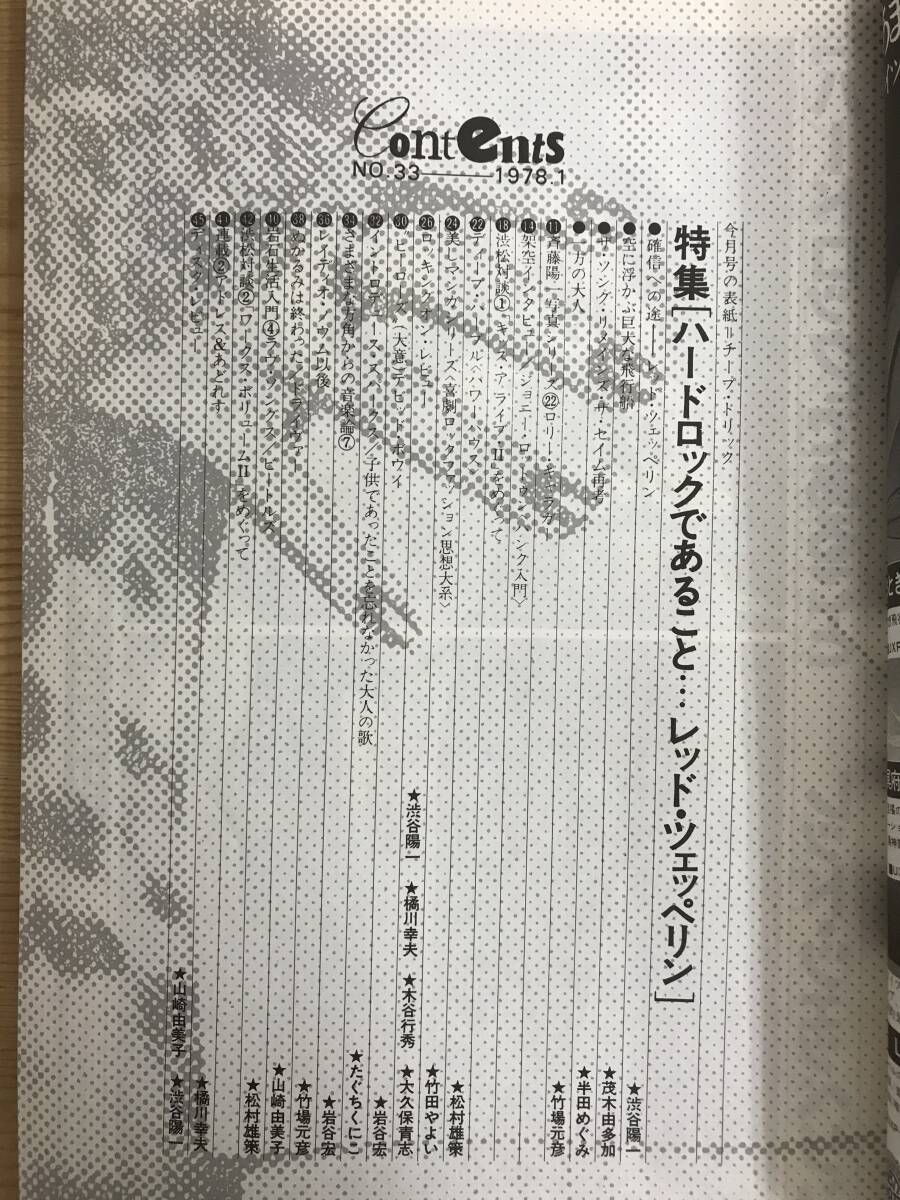 Contents
NO.33 1978.1
今月号の表紙＝チープ・トリック
特集[ハードロックであること…レッド・ツェッペリン]
●確信への途——レッド・ツェッペリン ★渋谷陽一
●空に浮かぶ巨大な飛行船 ★茂木由多加
●ザ・ソング・リメインズ・ザ・セイム再考 ★半田めぐみ
●一方の大人 ★竹場元彦
⓫斉藤陽一写真シリーズ㉒ロリー・ギャラガー
⓮架空インタビュー/ジョニー・ロットン〈パンク入門〉
⓲渋松対談①「キッス・アライブII」をめぐって
㉒ディープ・パープル〈パワーハウス〉
㉔美しマンガシリーズ〈喜劇ロックファッション思想大系〉 ★松村雄策
㉖ロッキング・オン・レビュー ★竹田やよい
★渋谷陽一 ★橘川幸夫 ★木谷行秀 ★大久保青志
㉚“ヒーローズ”(大意)デビッド・ボウイ
㉜イントロデュース・スパークス/子供であったことを忘れなかった大人の歌 ★岩谷宏
さまざまな方角からの音楽論⑦ ★たぐちくにこ
㊱レイディオ・ノウム以後 ★岩谷宏
㊳ぬかるみは終わった、ドライヴァー ★竹場元彦
㊵岩石生活入門④ラヴ・ソングス/ビートルズ ★山崎由美子
㊷渋松対談②「ワークスボリュームII」をめぐって ★松村雄策
連載②アドレス&あどれす ★橘川幸夫
㊺ディスク・レビュー ★山崎由美子 ★渋谷陽一